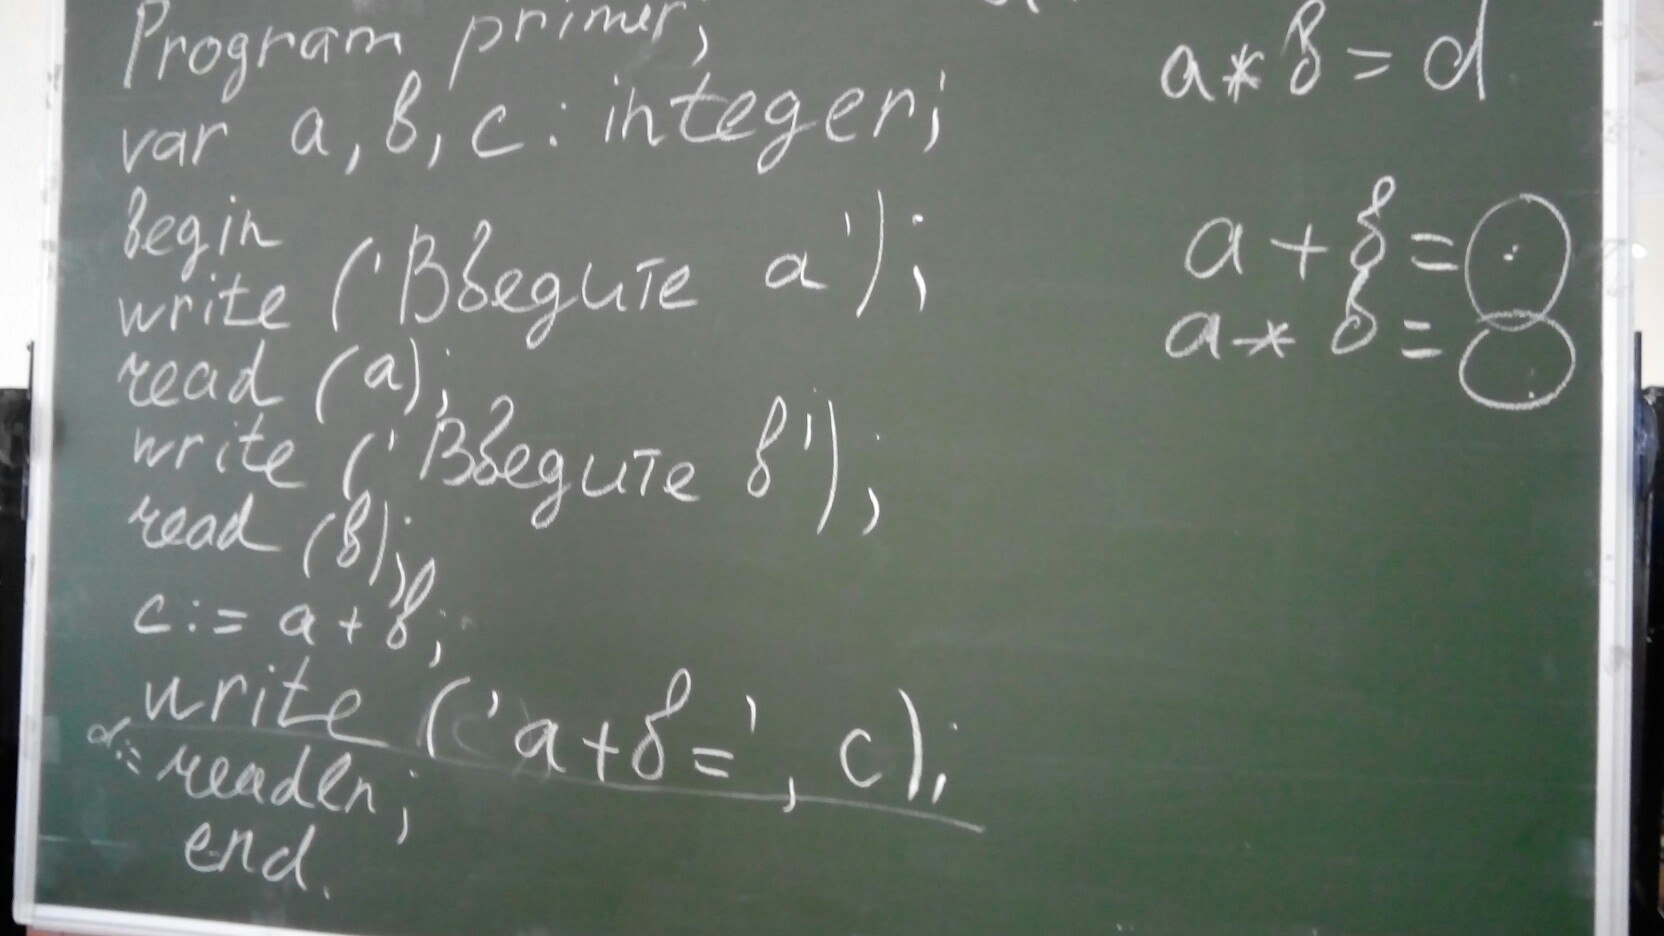 Program primer;
var a, b, c : integer;
begin
write ('Введите a');
read (a);
write ('Введите b');
read (b);
c := a + b;
write ('a+b=', c);
d:=
readln;
end.
a * b = d
a + b =
a * b =